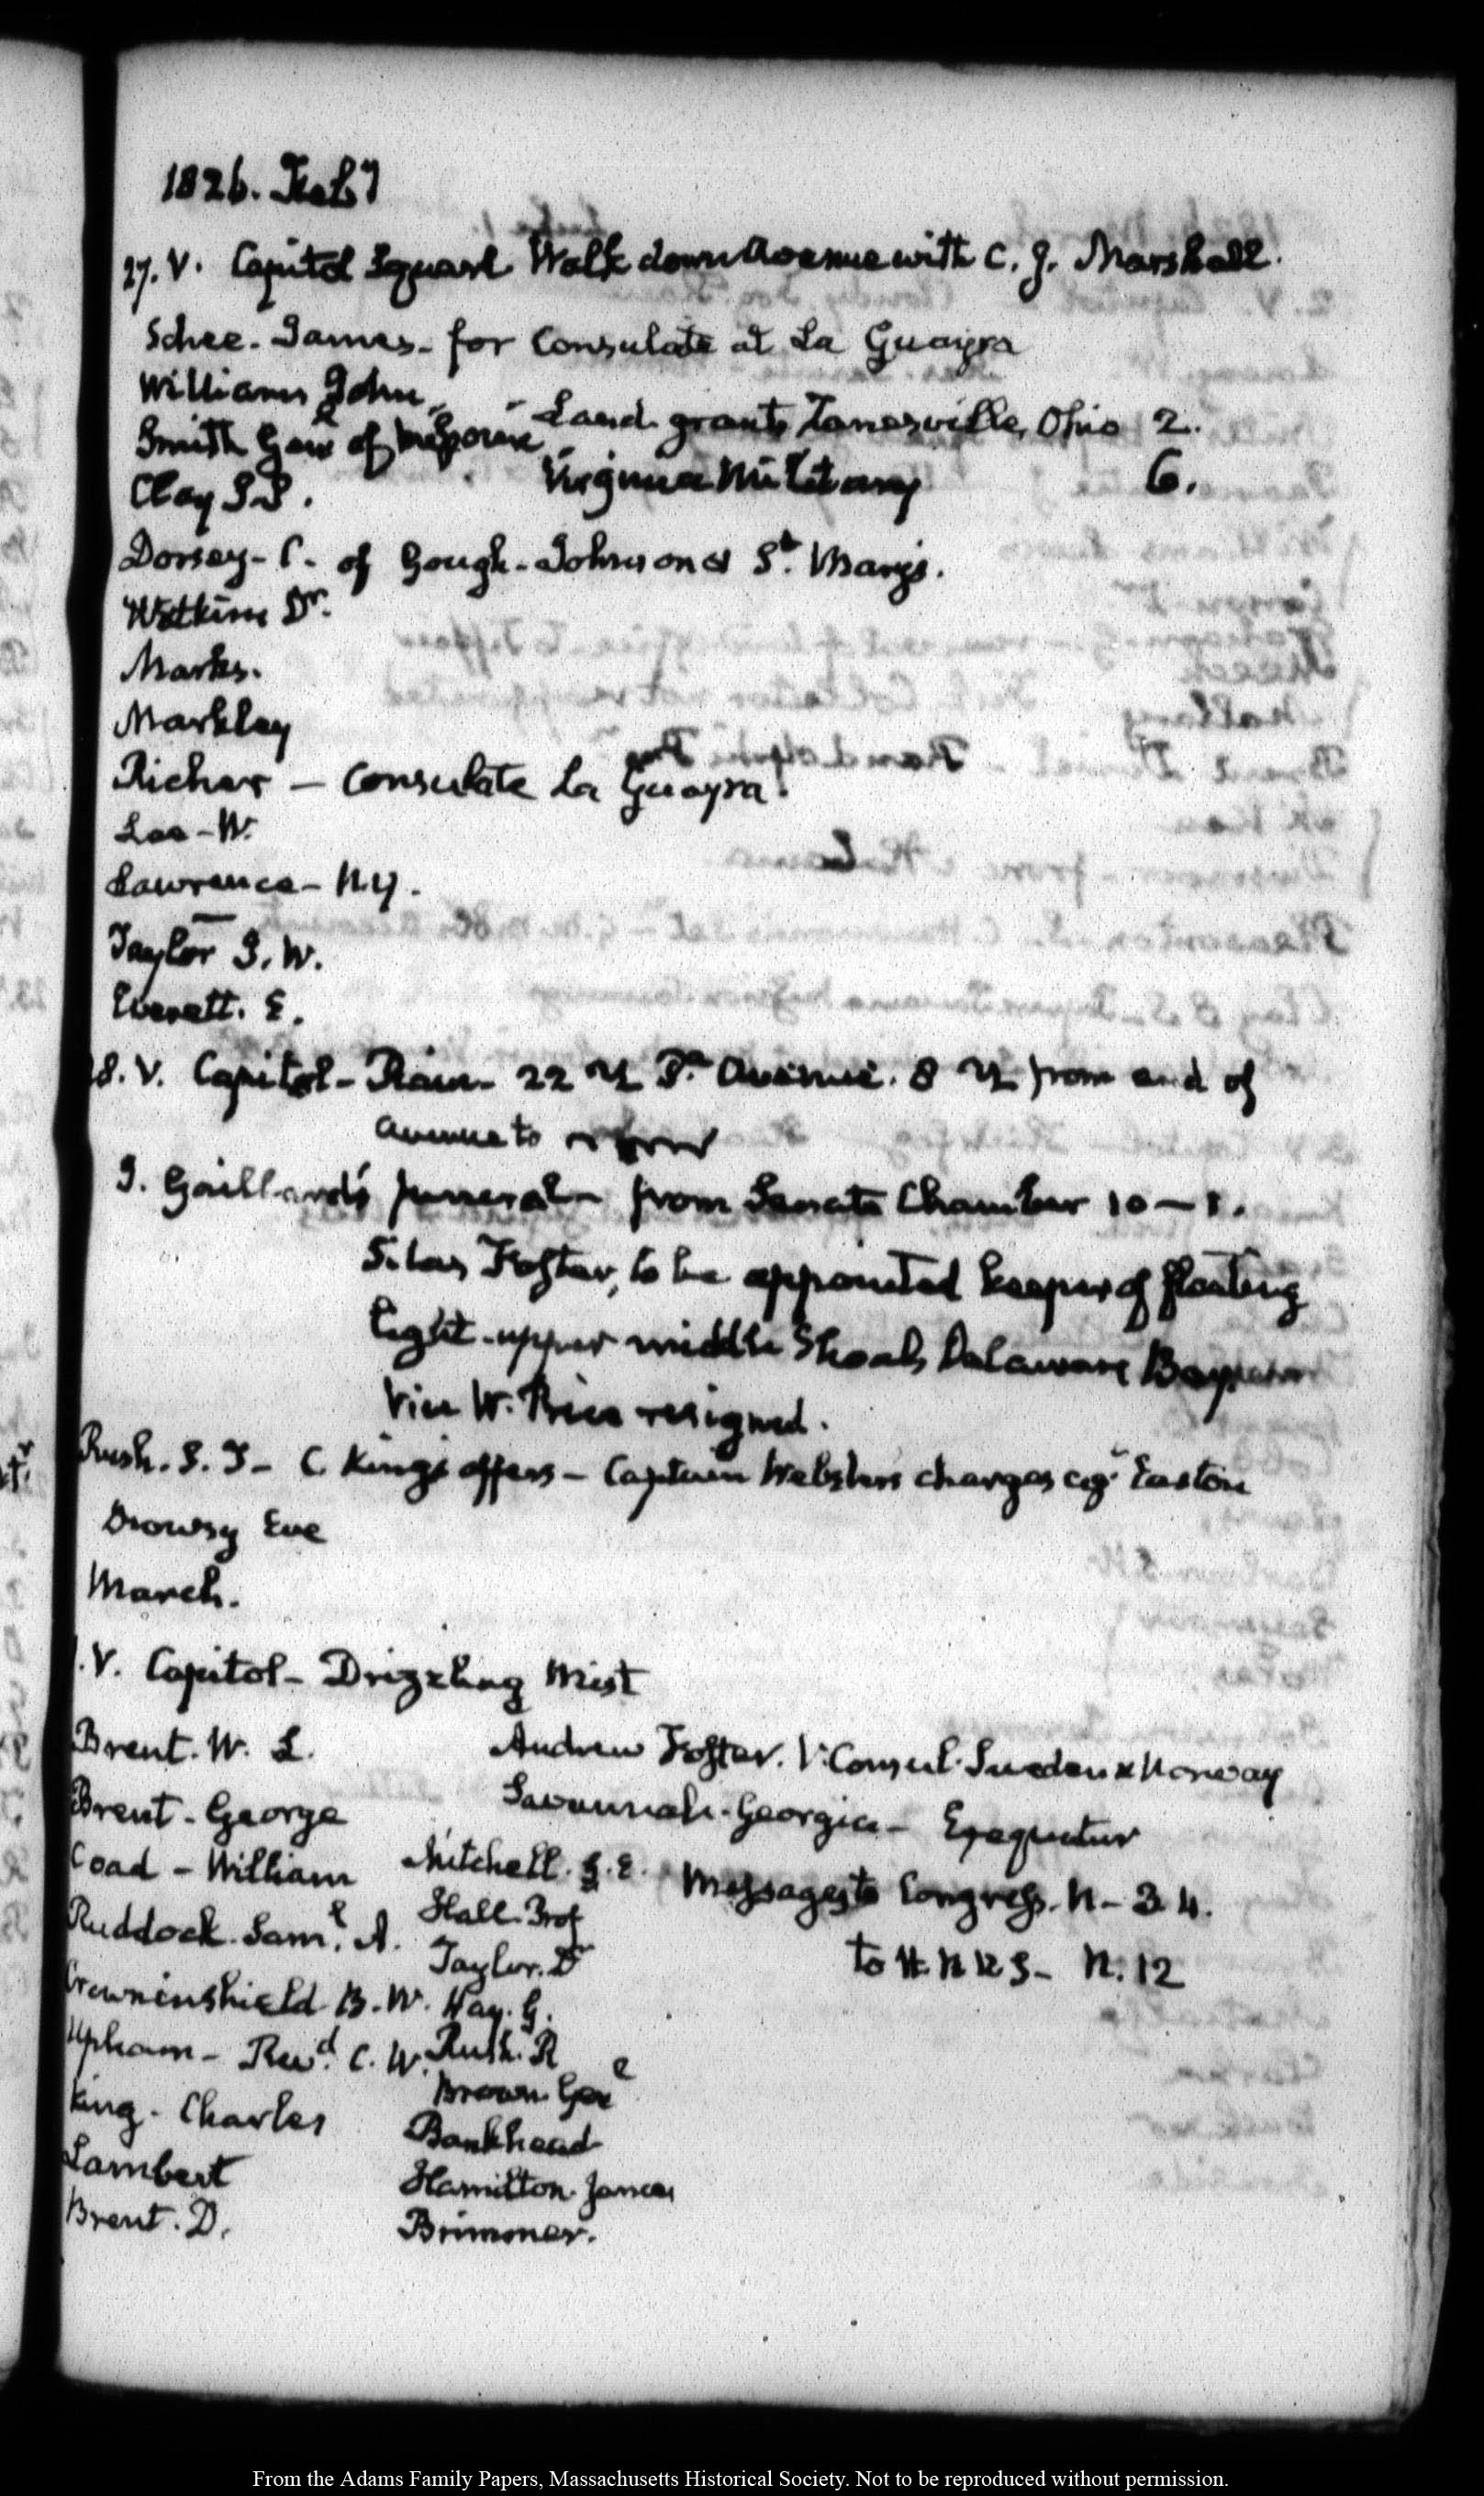 1826. Feby
27. V. Capitol Square. Walk down Avenue with C. J. Marshall.
Schee. James. for Consulate at La Guayra
Williams John
Smith Genl of - Land grants Zanesville, Ohio 2.
Clay S.S. Virginia Military 6.
Dorsey - C. of Gough - Johnson & St. Mary's.
Watkins Dr.
Marks.
Markley
Richar — Consulate La Guayra.
Lee - W.
Lawrence - N.Y.
Taylor J. W.
Everett. E.
28. V. Capitol - Rain - 22 M Pa Avenue. 8 M from end of
avenue to
J. Gaillard's funeral - from Senate Chamber 10 — 1.
Silas Foster, to be appointed keeper of floating
light - upper middle Shoals Delaware Bay
Vice W. Rice resigned.
Rush. S. T - C. King's offers - Captain Webster's charges agt Easton
Drowsy Eve
March.
1. V. Capitol - Drizzling Mist
Brent. W. L. Andrew Foster. V. Consul. Sweden & Norway
Brent - George Savannah. Georgia - Exequatur
Coad - William Mitchell. G. E. Messages to Congress. N - 3. 4.
Ruddock. Saml. A. Hall. Prof
Taylor. Dr to H. R U S - N. 12
Crowninshield B. W. Hay. G.
Upham - Revd. C. W. Rush. R
King. Charles Brown. Genl
Lambert Bankhead
Brent. D. Hamilton. James
Brimmer.
From the Adams Family Papers, Massachusetts Historical Society. Not to be reproduced without permission.